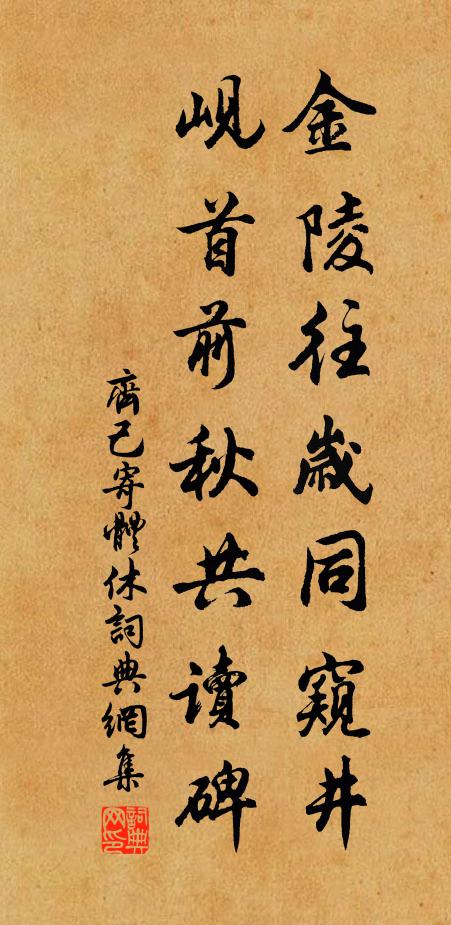 金陵往歲同窺井
峴首前秋共讀碑
齊己寄體休詞典網集
詞典網印